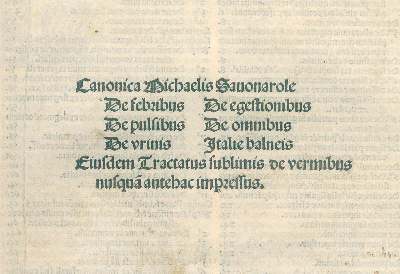 Canonica Michaelis Sauonarole
De febribus De egestionibus
De pulsibus De omnibus
De vrinis Italie balneis
Eiusdem Tractatus sublimis de vermibus
nusquã antehac impressus.